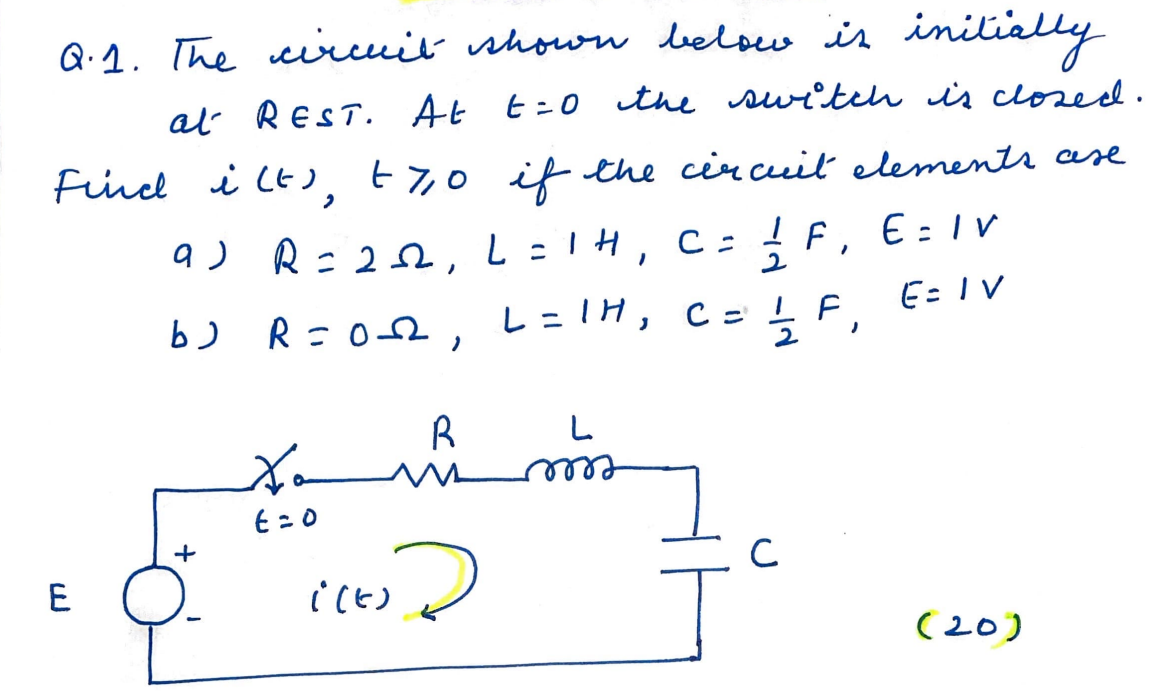 Q.1. The circuit shown below is initially
at REST. At t=0 the switch is closed.
Find i(t), t ⩾ 0 if the circuit elements are
a) R = 2Ω, L = 1H, C = 1/2 F, E = 1V
b) R = 0Ω, L = 1H, C = 1/2 F, E = 1V
R L
t=0
+
C
E i(t)
-
(20)